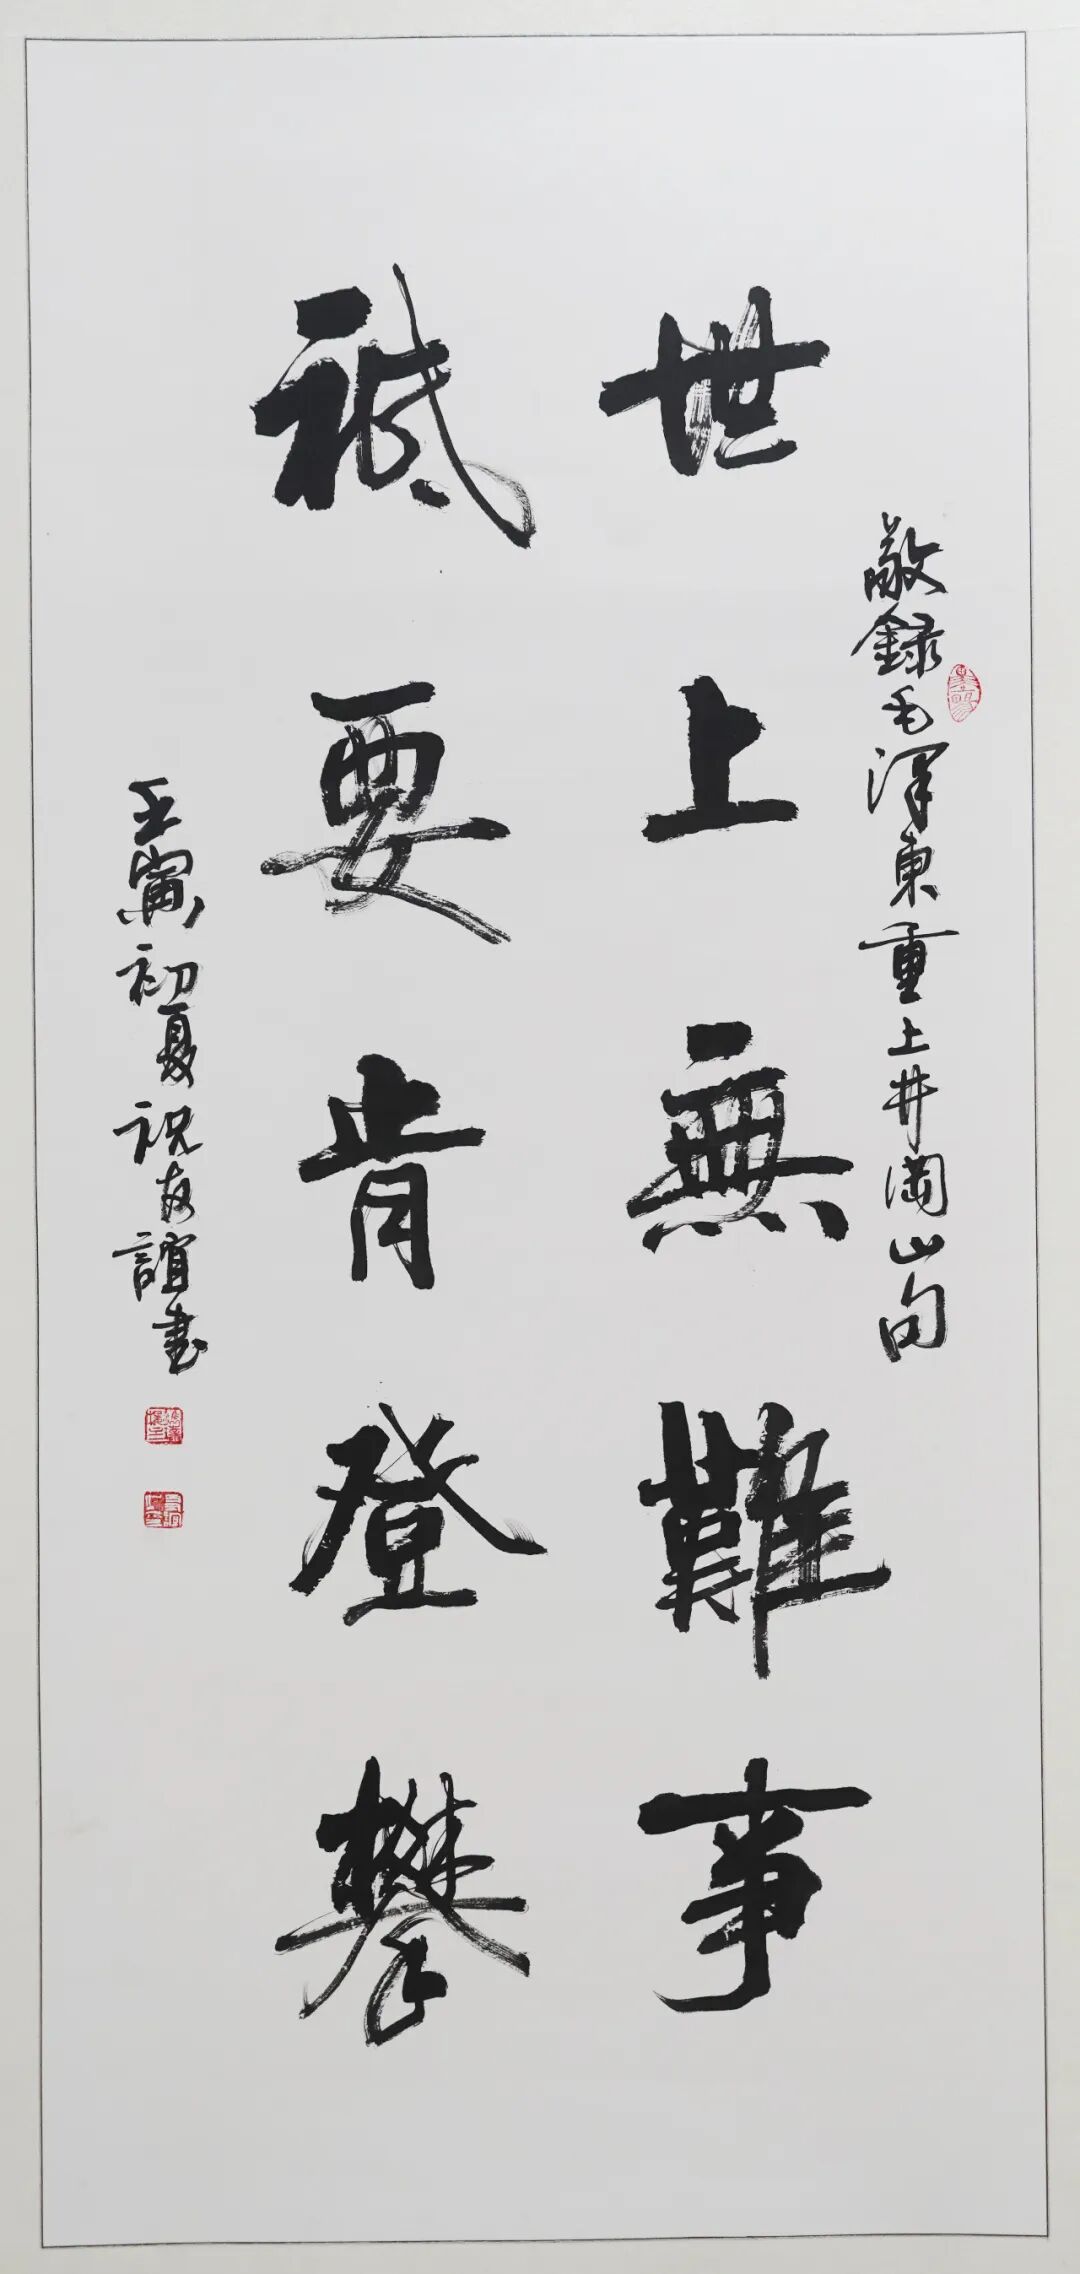 敬録毛澤東重上井岡山句
世上無難事
祗要肯登攀
壬寅初夏祝友誼書